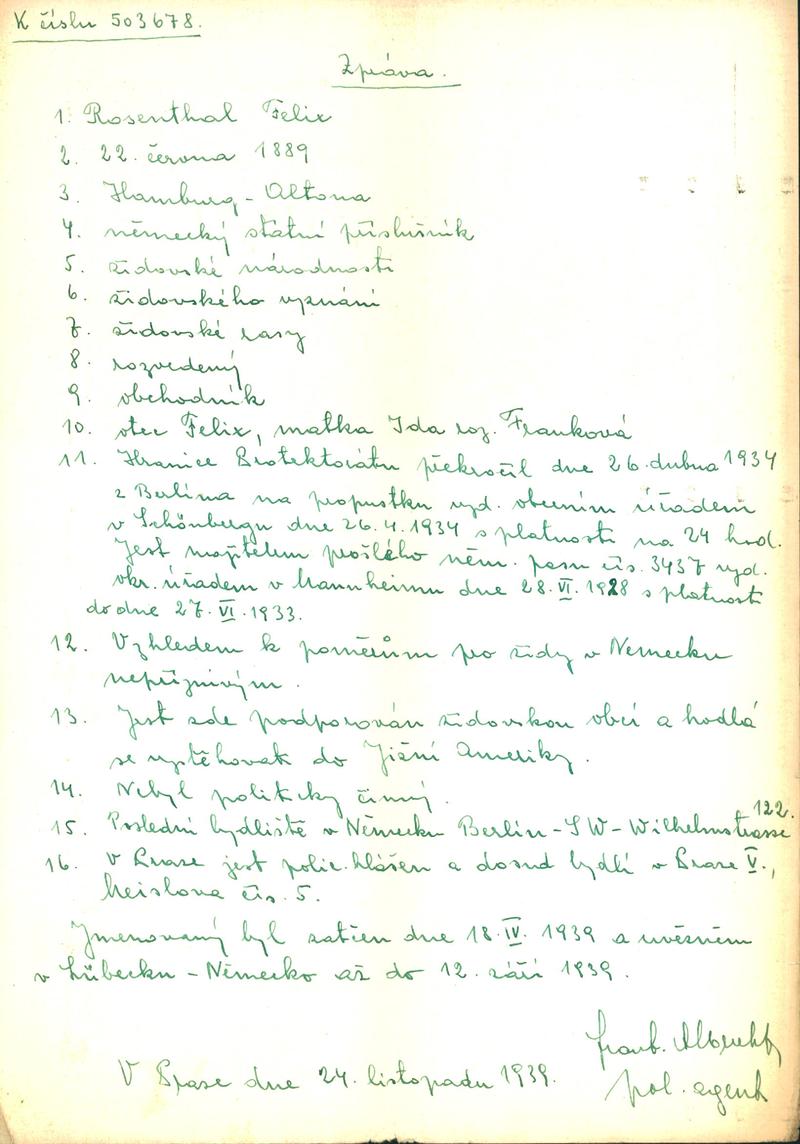 K číslu 503678.
Zpráva.
1. Rosenthal Felix
2. 22. června 1889
3. Hamburg - Altona
4. německý státní příslušník
5. židovské národnosti
6. židovského vyznání
7. židovské rasy
8. rozvedený
9. obchodník
10. otec Felix, matka Ida roz. Franková
11. Hranice Protektorátu překročil dne 26. dubna 1934
z Berlína na propustku vyd. obecním úřadem
v Schönbergu dne 26.4.1934 s platností na 24 hod.
Jest majitelem prošlého něm. pasu čís. 3437 vyd.
okr. úřadem v Mannheimu dne 28.VI.1928 s platností
do dne 27.VI.1933.
12. Vzhledem k poměrům pro židy v Německu
nepříznivým.
13. Jest zde podporován židovskou obcí a hodlá
se vystěhovati do Jižní Ameriky.
14. Nebyl politicky činný.
15. Poslední bydliště v Německu Berlin-SW-Wilhelmstrasse 122.
16. V Praze jest polic. hlášen a dosud bydlí v Praze V.,
Meislova čís. 5.
Jmenovaný byl zatčen dne 18.IV.1939 a uvězněn
v Lübecku - Německo až do 12. září 1939.
Albrecht
V Praze dne 24. listopadu 1939.
pol. agent